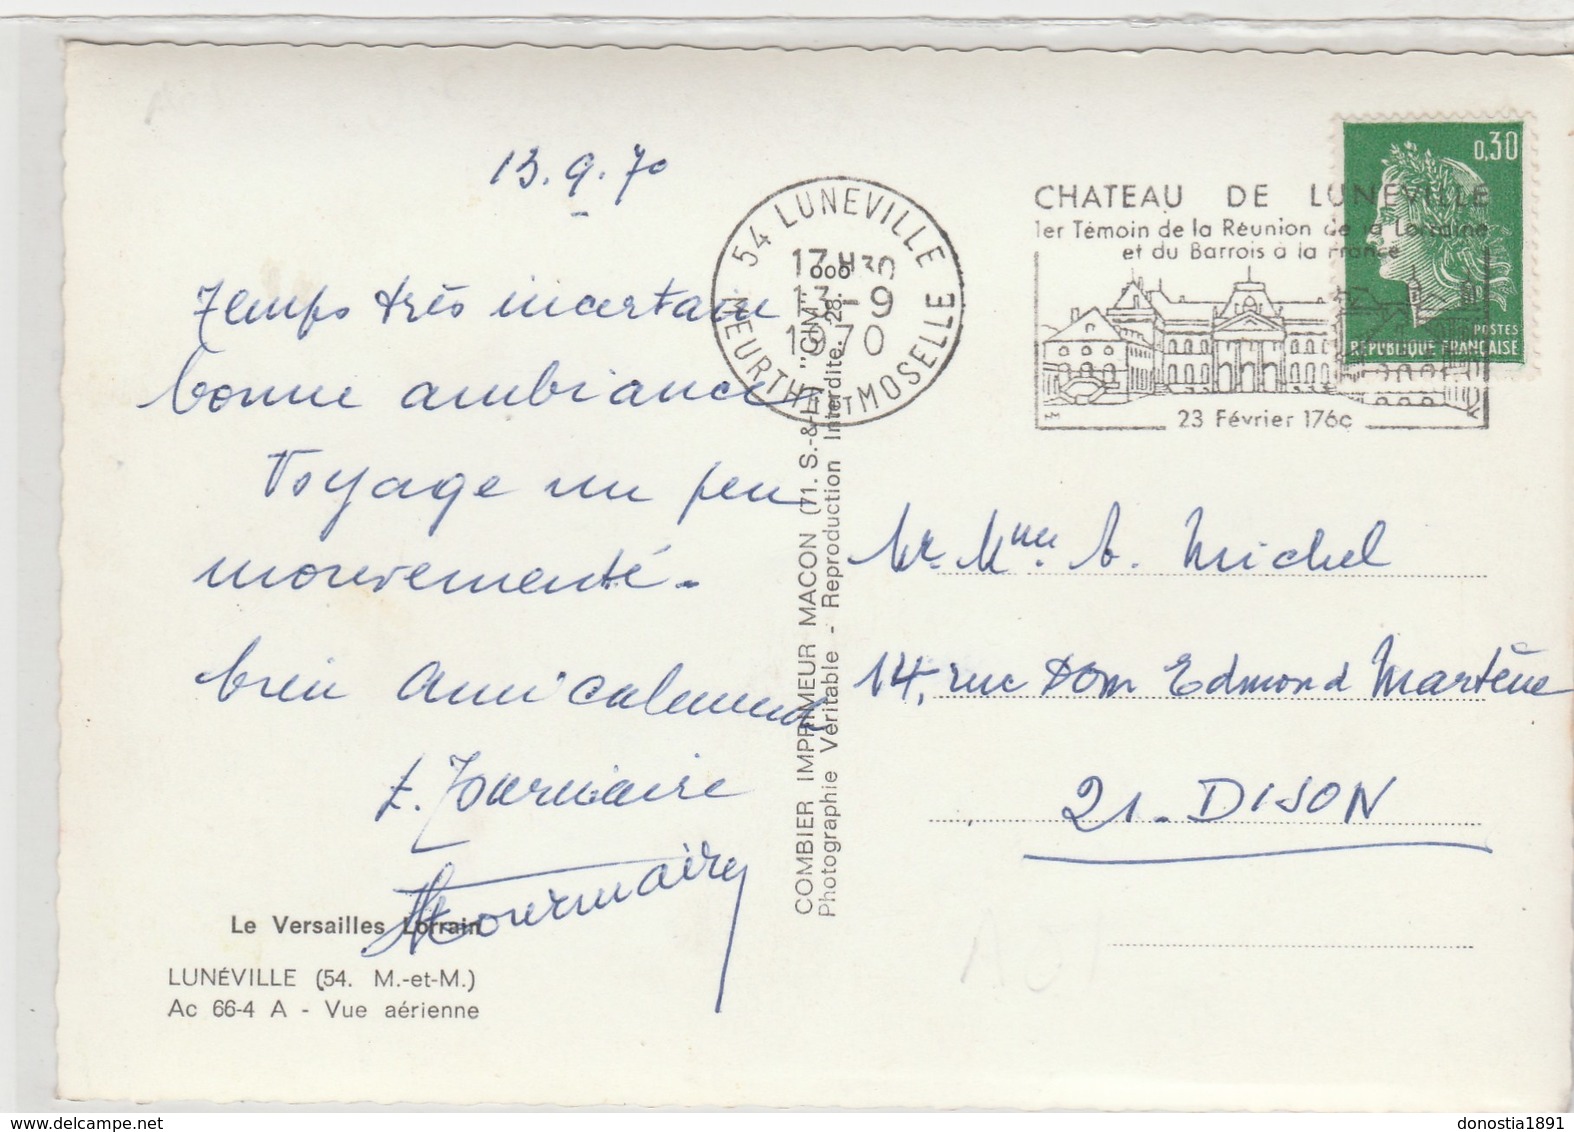 13.9.70
Temps très incertain
bonne ambiance
Voyage un peu
mouvementé.
bien amicalement
Fourmaire
Le Versailles Lorrain
LUNÉVILLE (54. M.-et-M.)
Ac 66-4 A - Vue aérienne
COMBIER IMPRIMEUR MACON (71. S.-&-L.) "CIM"
Photographie Véritable - Reproduction Interdite. 28.
54 LUNEVILLE
17H30
13-9
1970
MEURTHE ET MOSELLE
CHATEAU DE LUNEVILLE
1er Témoin de la Réunion de la Lorraine
et du Barrois à la France
23 Février 176
0,30
POSTES
REPUBLIQUE FRANÇAISE
Mr Mme A. Michel
14, rue Dom Edmond Martène
21. DIJON
donostia1891